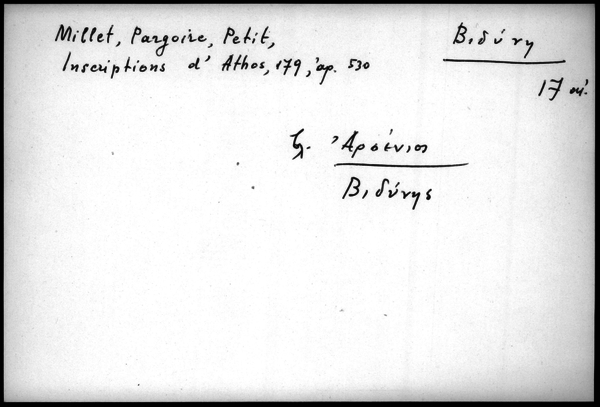 Millet, Pargoire, Petit,
Inscriptions d' Athos, 179, ἀρ. 530
Βιδύνη
17 αἰ.
Ἀρσένιος
Βιδύνης